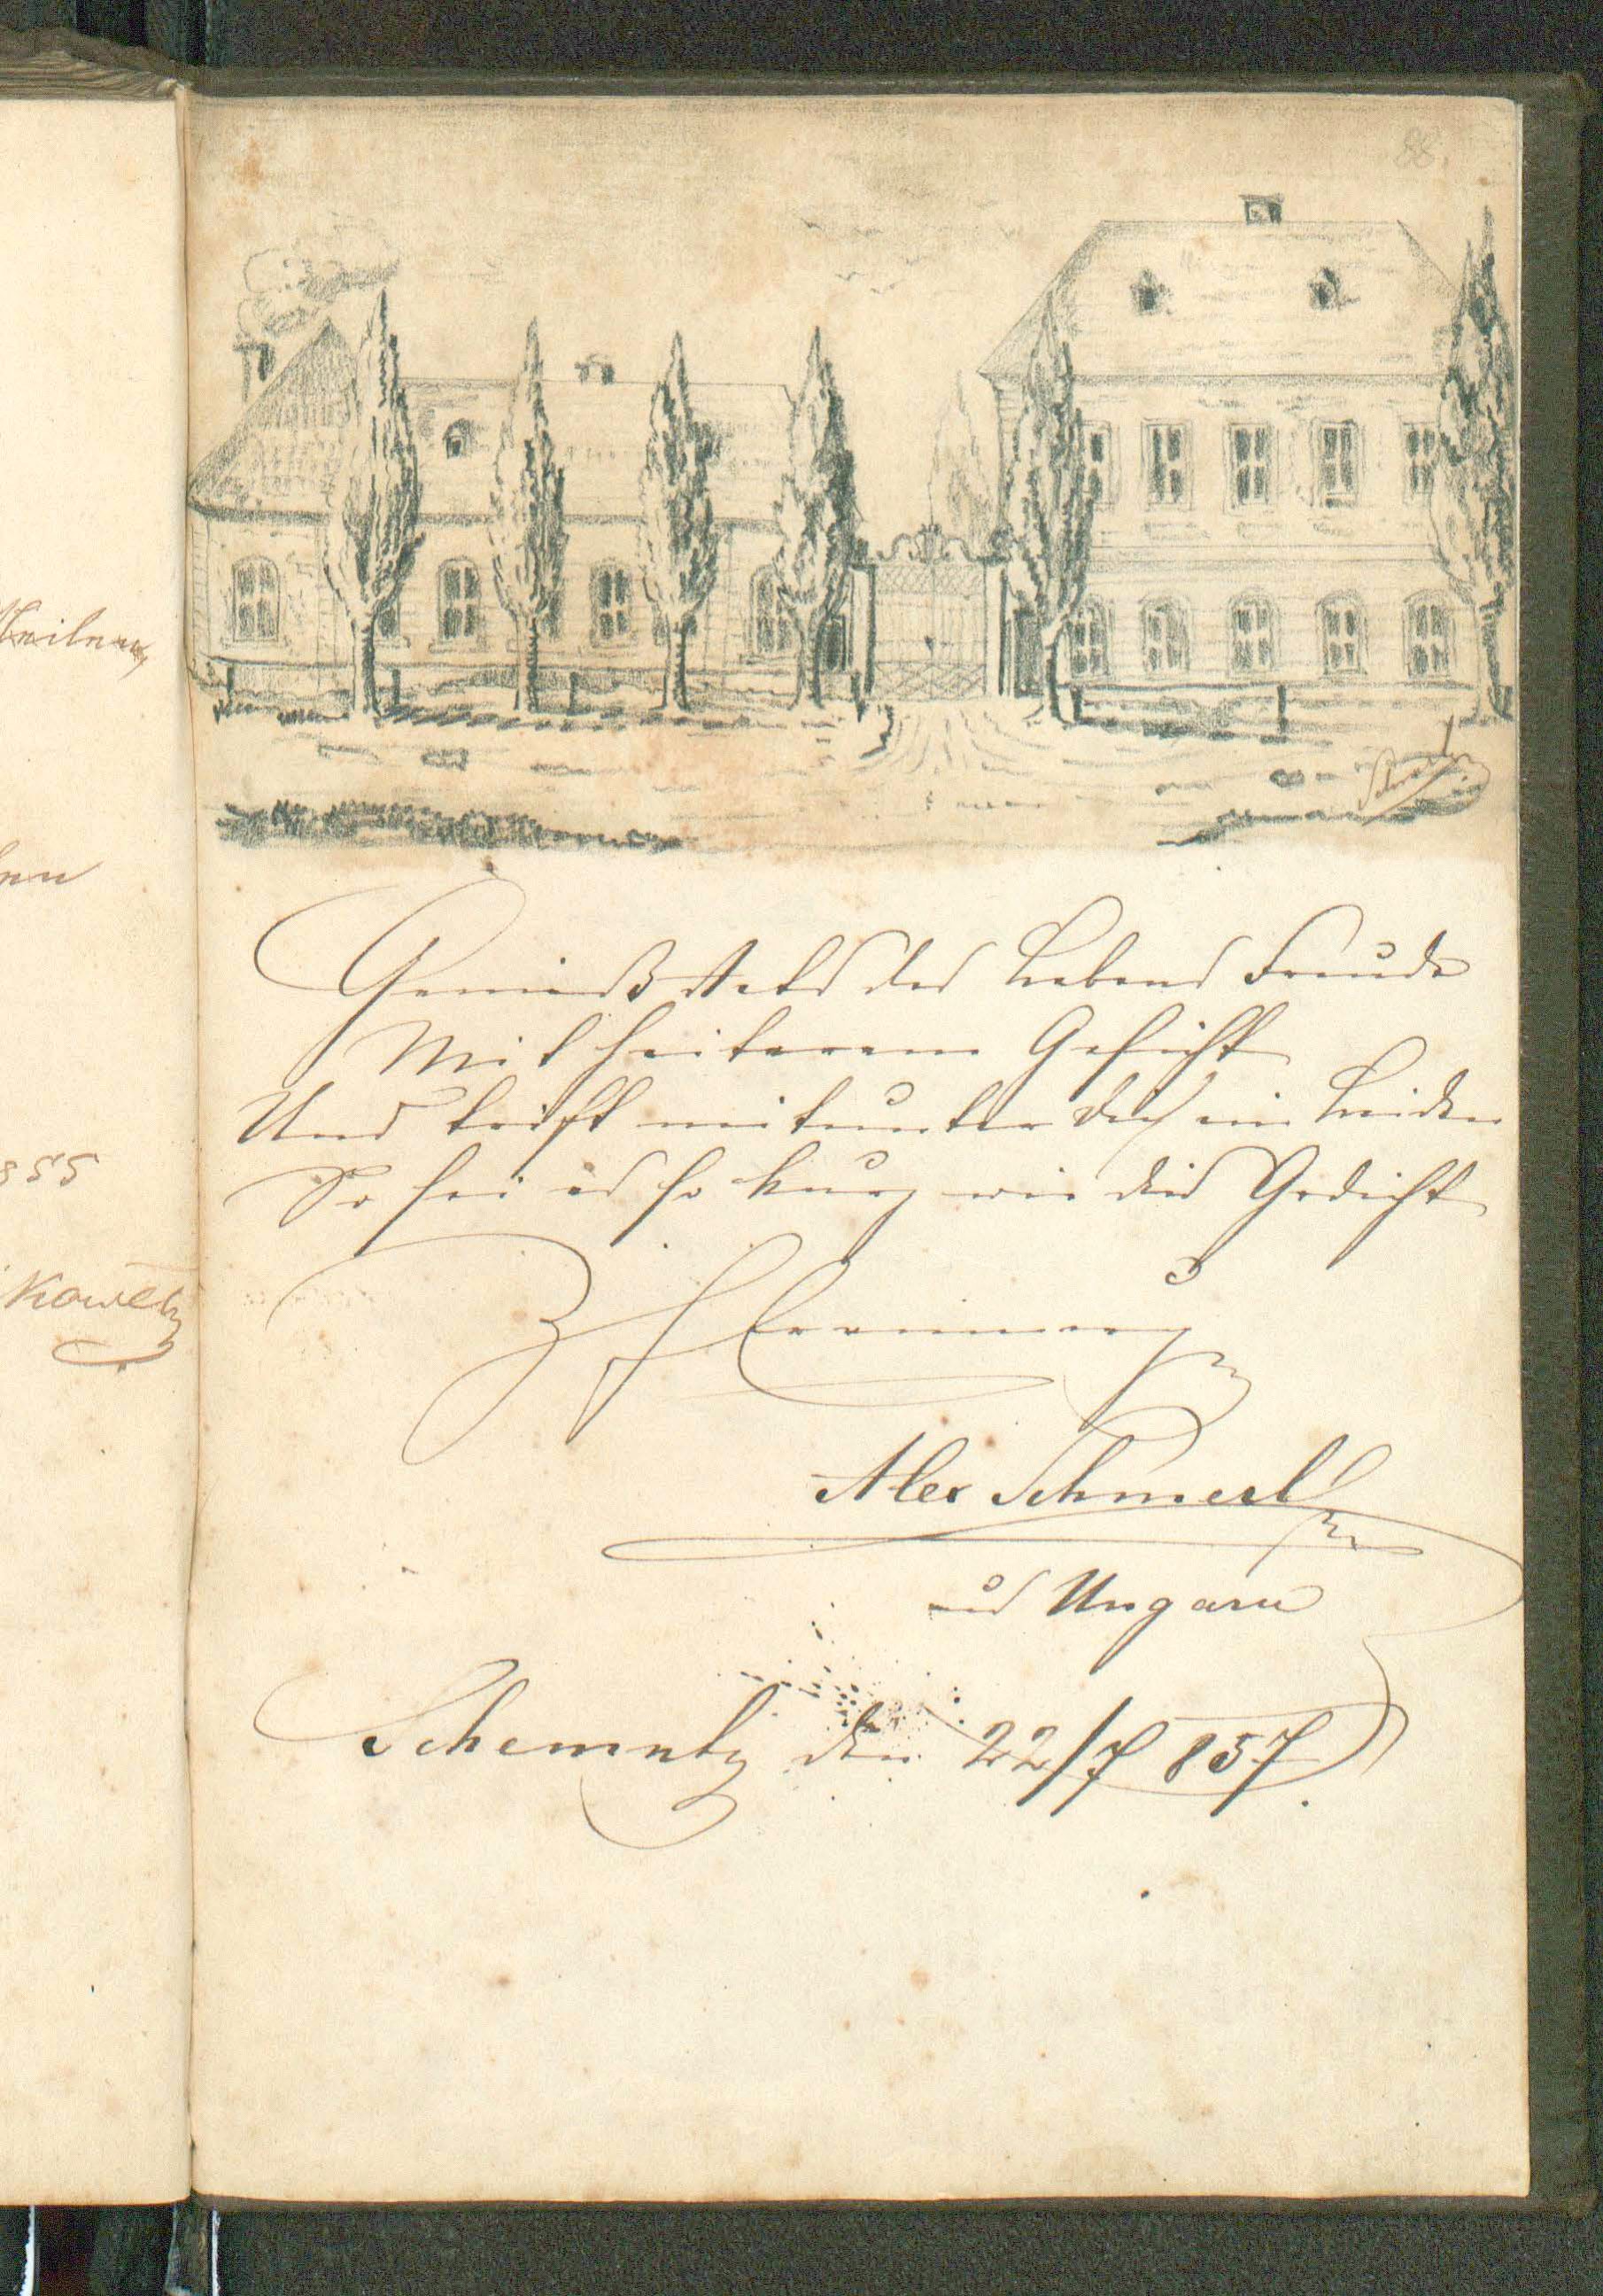 88.
Genieß stets des Lebens Freude
Mit heiterem Gesicht
Und trifft mitunter dich ein Leiden
So sei es so kurz wie dies Gedicht
Z Erinnerung
Alex Schmerl
aus Ungarn
Schemnitz den 22/7 857.
855